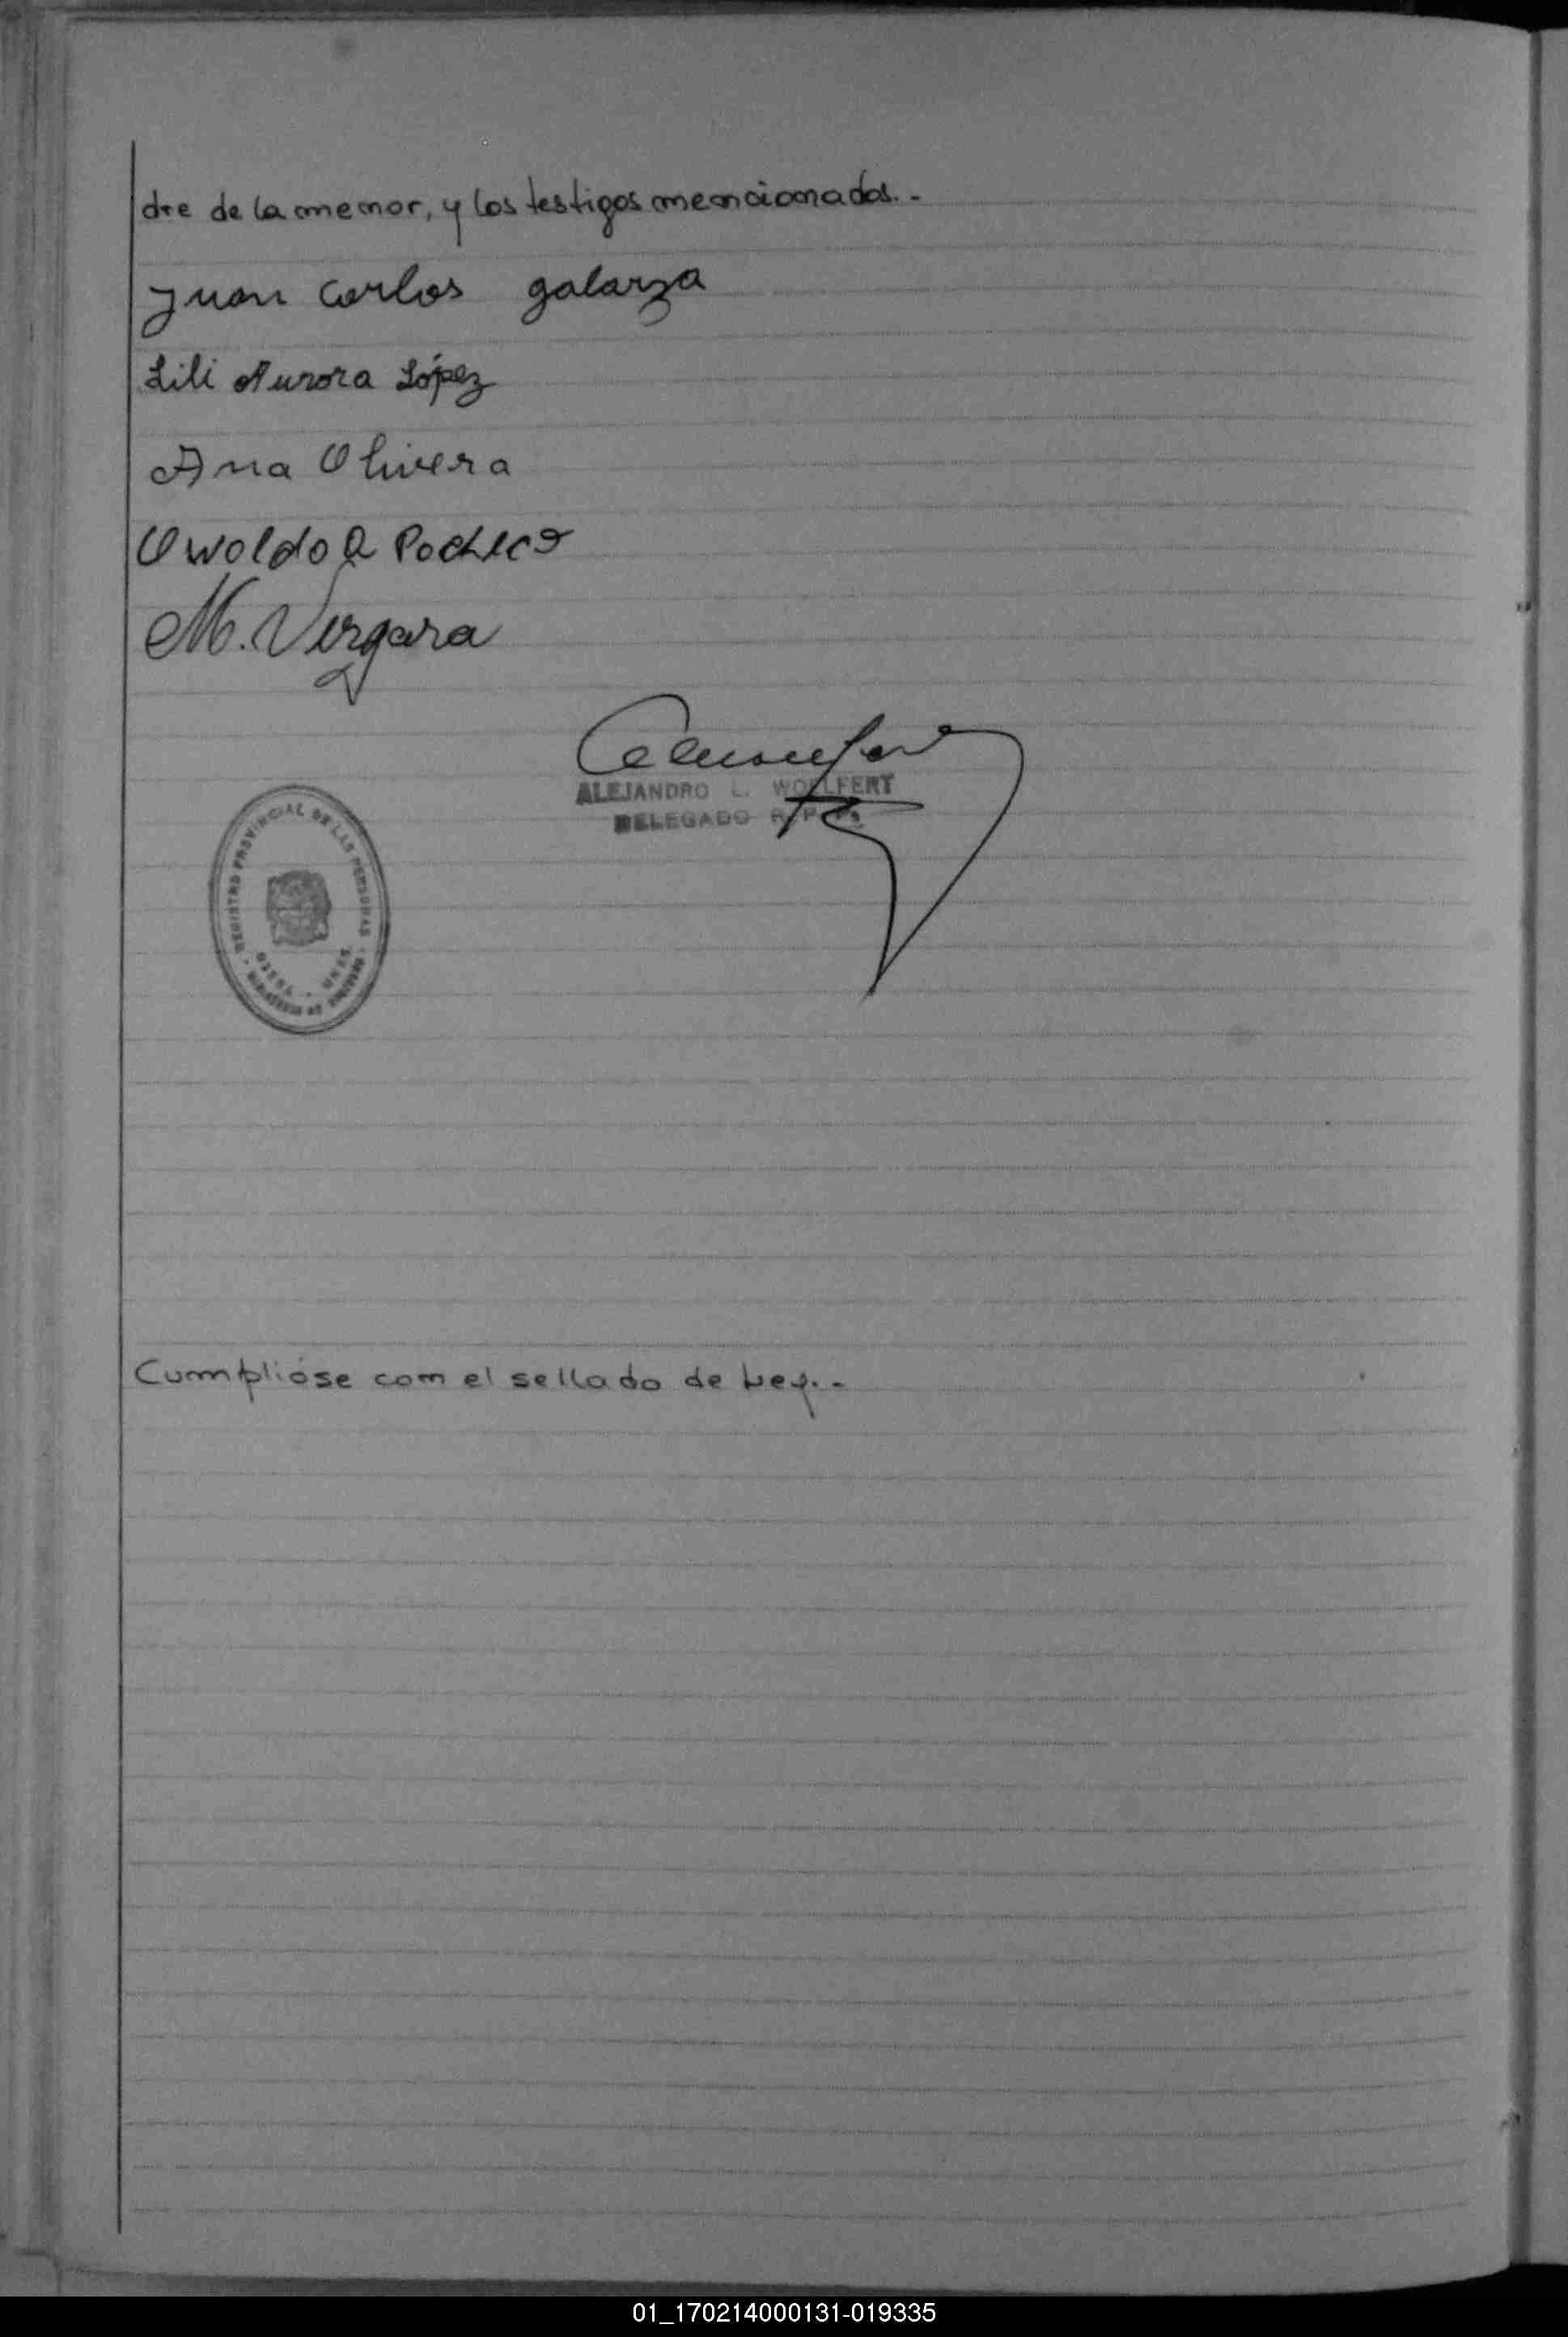 dre de la menor, y los testigos mencionados.-
Juan Carlos galarza
Lili Aurora López
Ana Olivera
Pacheco
M. Vergara
ALEJANDRO L. WOLFERT
DELEGADO R. P. P.
REGISTRO PROVINCIAL DE LAS PERSONAS
Cumplióse con el sellado de Ley.-
01_170214000131-019335